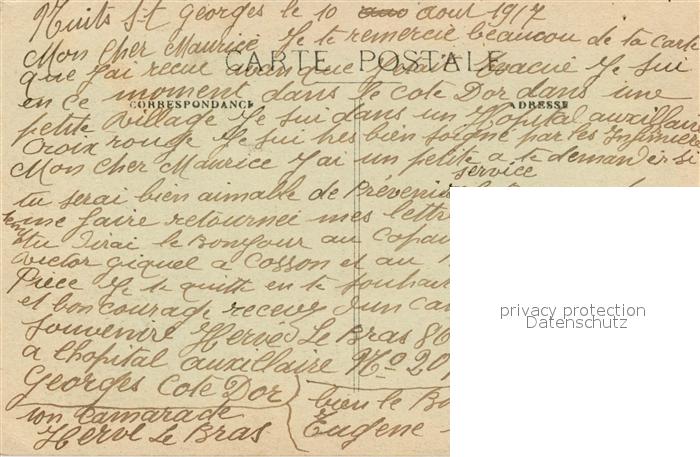 Nuits St Georges le 10 aout 1917
Mon cher Maurice Je te remercie beaucou de ta carte
CARTE POSTALE
que J'ai recue avan que J'etai evacué Je sui
en ce moment dans le cote Dor dans une
CORRESPONDANCE ADRESSE
petite village Je sui dans un Hopital auxillaire
Croix rouge Je sui tres bien soigné par les Infirmière
Mon cher Maurice J'ai un petite a te demander si
service
tu serai bien aimable de Prévenir
me faire retournei mes lettre
tems
tu Dirai le Bonjour au Copain
Victor giquel a Cosson et au
Pièce Je te quitte en te souhai
et bon courage recevez d'un cam
Souvenire Hervé Le Bras 86
a l'hopital auxillaire No 207
Georges Cote Dor
ton camarade
Herve Le Bras
bien le Bo
Eugene
privacy protection
Datenschutz